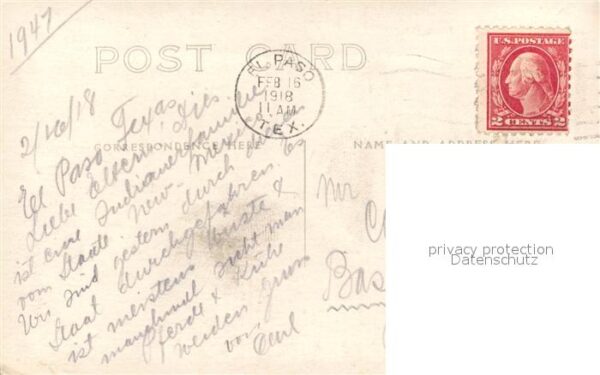 1947
POST CARD
EL PASO
FEB 16
11 AM
1918
TEX.
U.S. POSTAGE
2 CENTS 2
CORRESPONDENCE HERE
NAME AND ADDRESS HERE
2/16/18
El Paso Texas
Liebe Eltern. Dies
ist eine Indianer
vom Staate New-Mex.
Wir sind gestern durch den
Staat durchgefahren. Es
ist meistens Wüste &
manchmal sieht man
Pferde & Kühe
weiden
von
Mr
Bas
privacy protection
Datenschutz